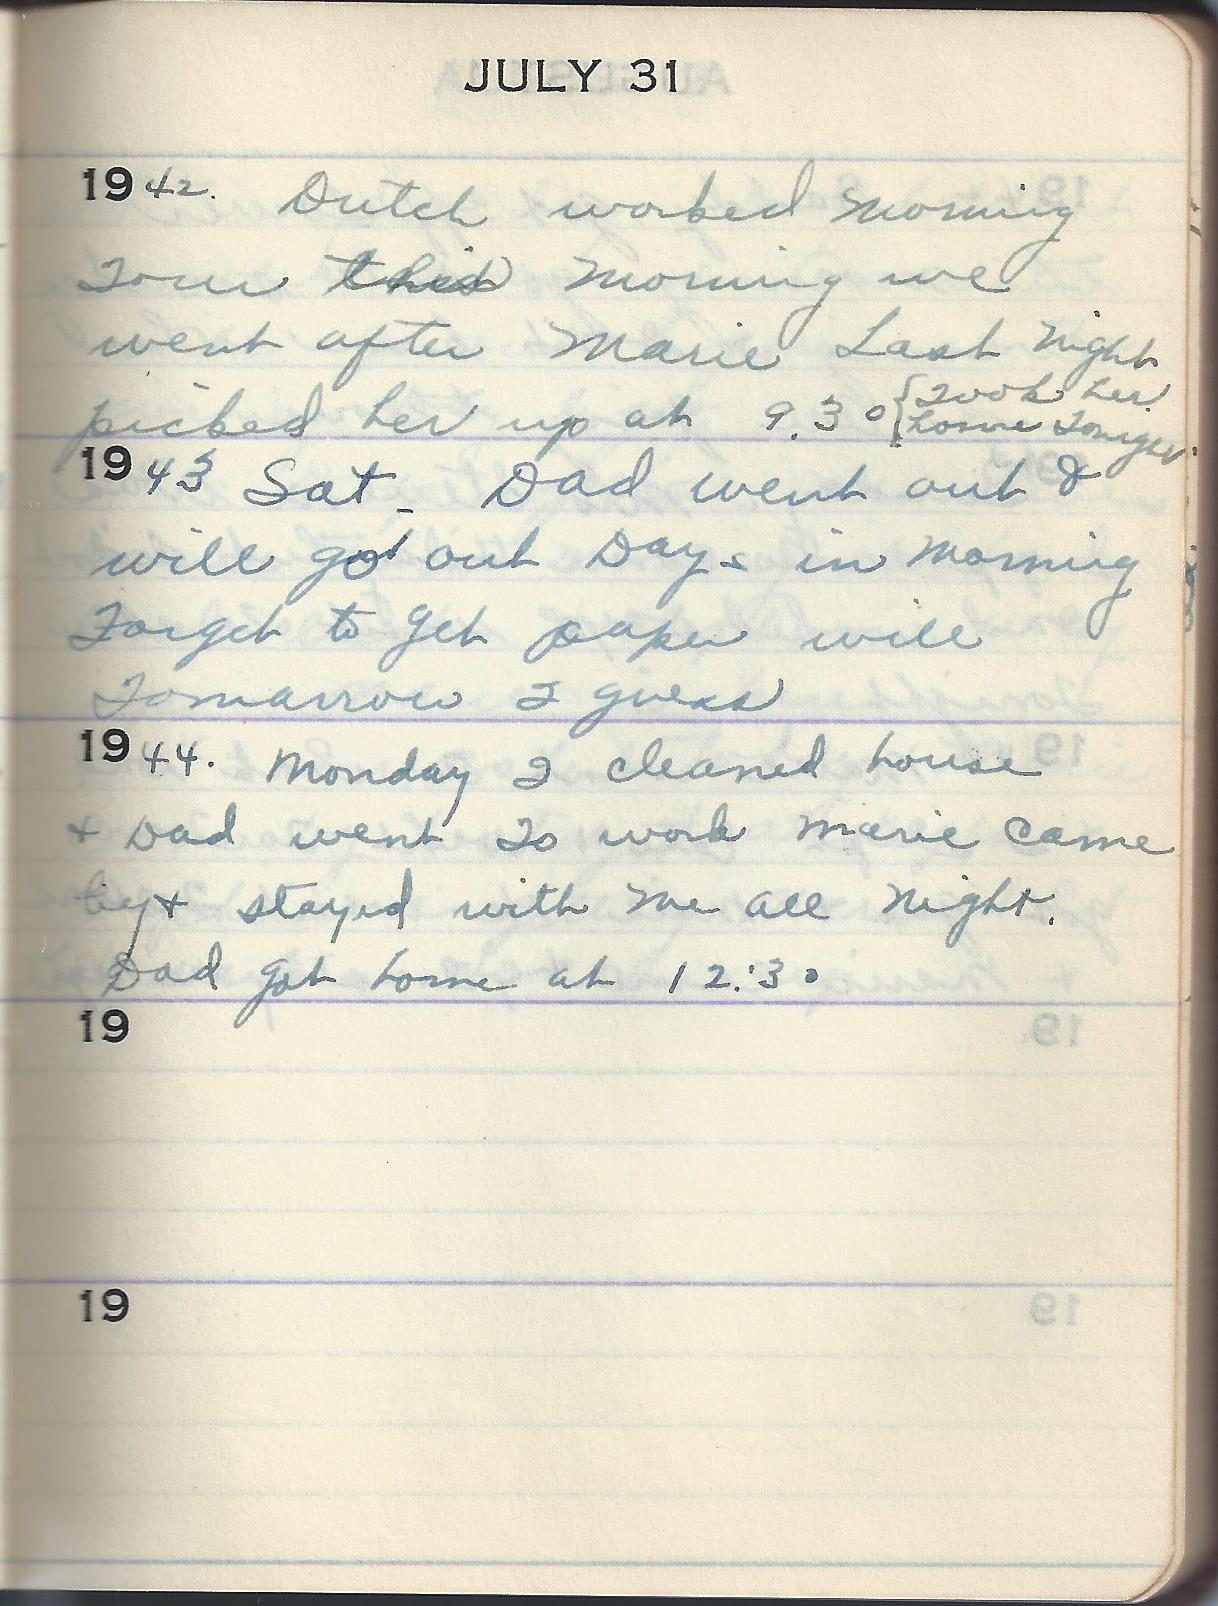 JULY 31
1942. Dutch worked morning
Tour this morning we
went after Marie Last Night
picked her up at 9.30 { Took her
home Tonight
1943 Sat. Dad went out &
will go out Days in morning
Forget to get paper will
Tomarrow I guess
1944. Monday I cleaned house
+ Dad went To work Marie came
by + stayed with me all night.
Dad got home at 12:30
19
19